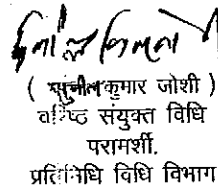 ( सुनील कुमार जोशी )
वरिष्ठ संयुक्त विधि
परामर्शी.
प्रतिनिधि विधि विभाग